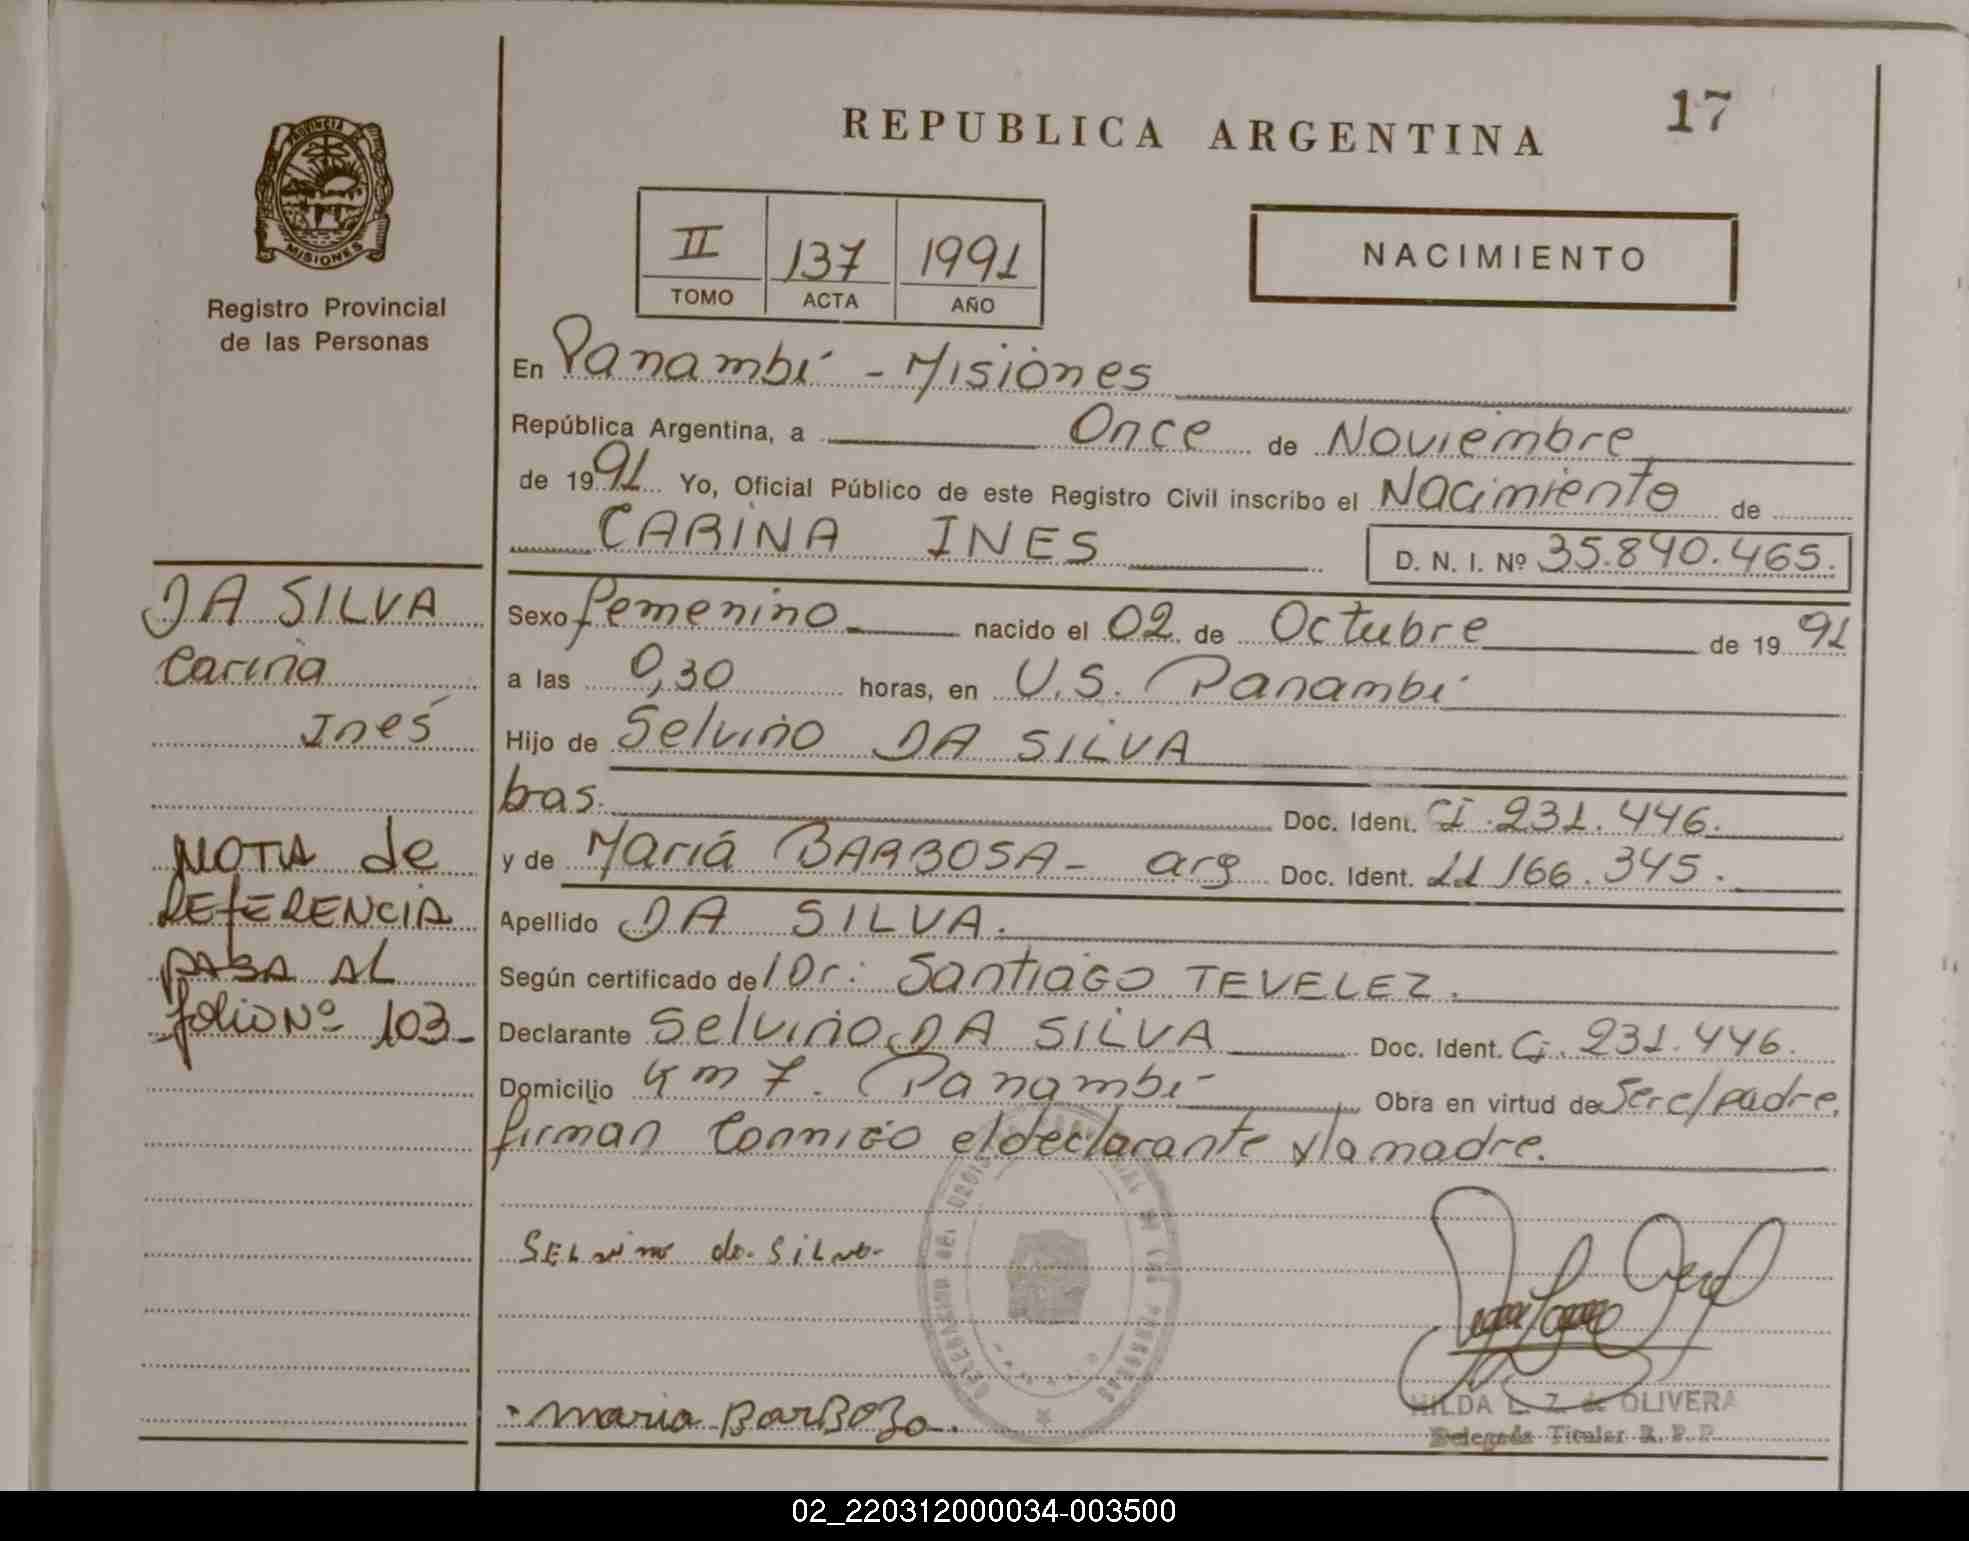 REPUBLICA ARGENTINA
17
PROVINCIA
MISIONES
Registro Provincial
de las Personas
II 137 1991
TOMO ACTA AÑO
NACIMIENTO
En Panambí - Misiones
República Argentina, a Once de Noviembre
de 1991 Yo, Oficial Público de este Registro Civil inscribo el Nacimiento de
CARINA INES D. N. I. Nº 35.840.465.
Sexo femenino nacido el 02 de Octubre de 1991
a las 0,30 horas, en U.S. Panambí
Hijo de Selvino DA SILVA
bras. Doc. Ident. CI. 231.446.
y de María BARBOSA - arg Doc. Ident. 11 166.345.
Apellido DA SILVA.
Según certificado de l Dr: Santiago TEVELEZ.
Declarante Selvino DA SILVA Doc. Ident. Ci. 231.446.
Domicilio Km 7. Panambí Obra en virtud de Ser el padre,
firman Conmigo el declarante y la madre.
DA SILVA
Carina
Inés
NOTA de
REFERENCIA
PASA AL
folio Nº 103-
SELvino da SiLva.
maria BarBoza.
HILDA L. Z. de OLIVERA
Delegada Titular R. P. P.
02_220312000034-003500